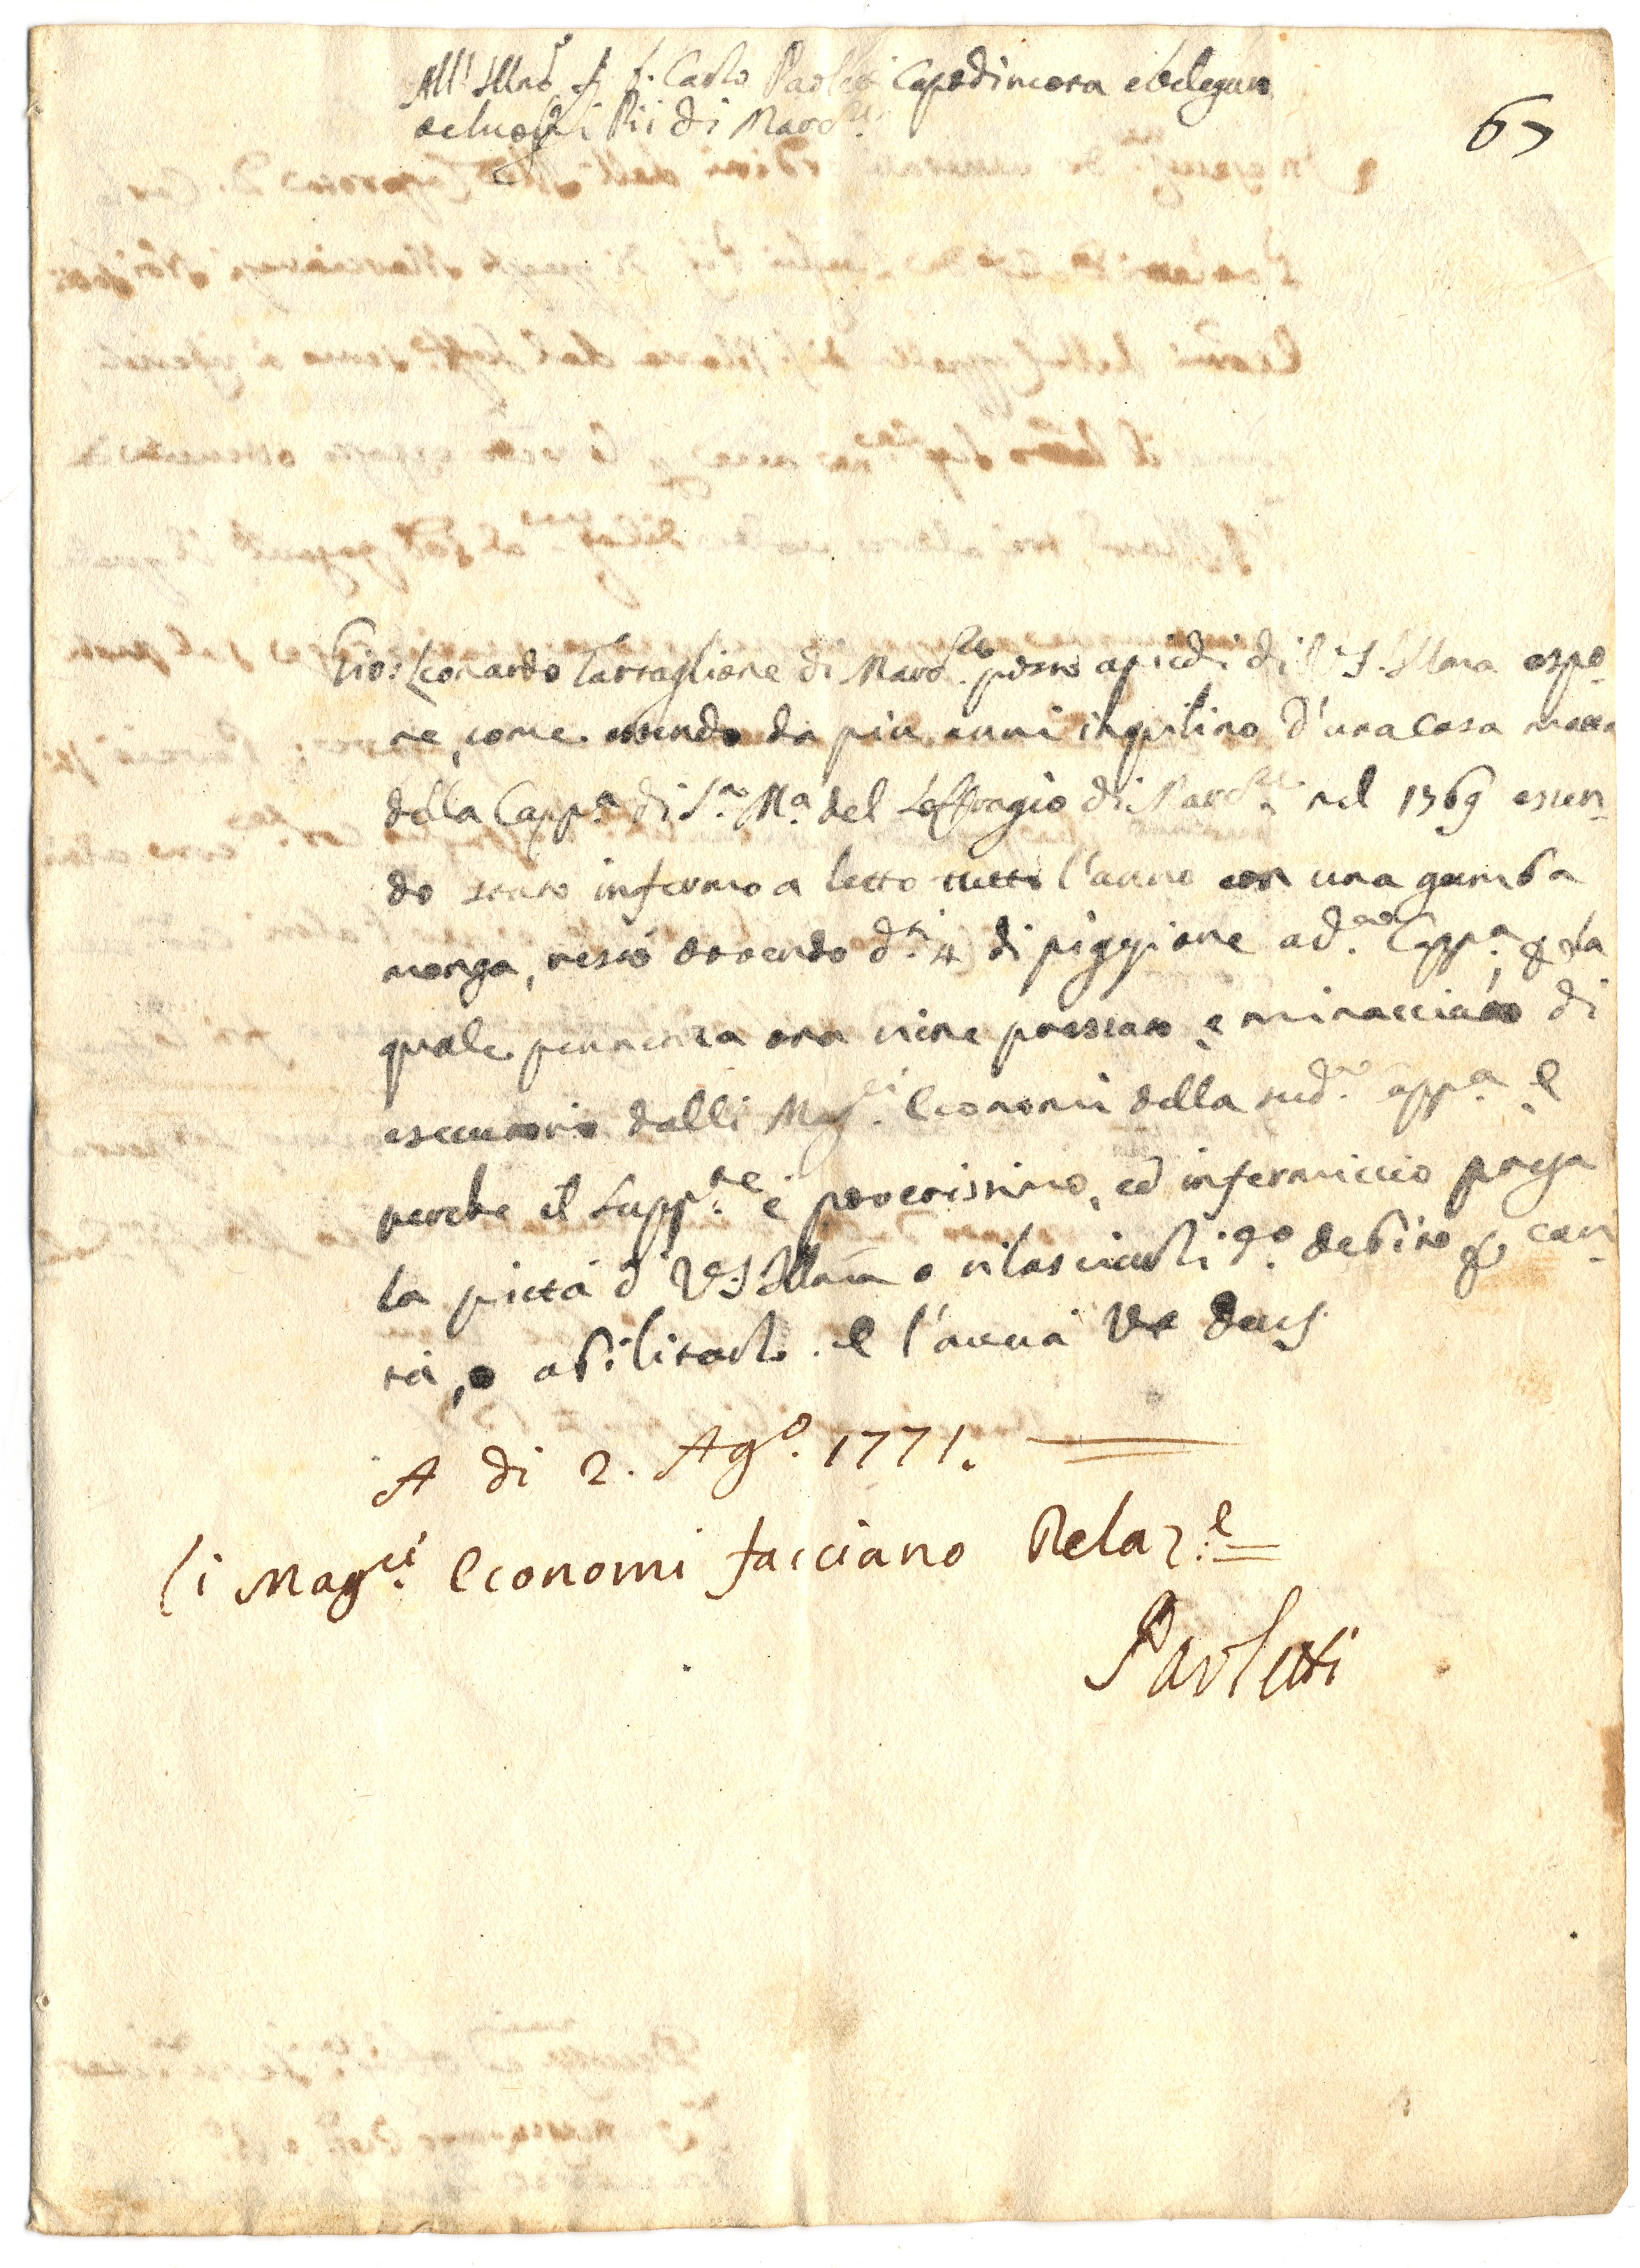 All' Illmo S. D. Carlo Paoletti Caporuota e Delegato
de luoghi Pii di Marc.lli
67
Gio: Leonardo Tartaglione di Marc.llo posto a piedi di V.S. Illma espo-
ne, come essendo da più anni inquilino d'una casa
della Capp.a di S.a M.a del Soffragio di Marc.lli nel 1769 essen-
do stato infermo a letto tutto l'anno con una gamba
monga, restò dovendo d.ti 4 di piggione a d.a Capp.a, p la
quale pennenza ora viene pressato e minacciato di
esecutorio dalli Mag.ci Economi della sud.a Capp.a e
perche il Supp.ne è poverissimo, ed infermiccio prega
la pietà di V.S. Illma o rilasciarli q.o debito p cari-
tà, o abilitarlo. e l'avrà Ut Deus.
A di 2. Ag.o 1771.
Li Mag.ci Economi facciano Relaz.e
Paoletti